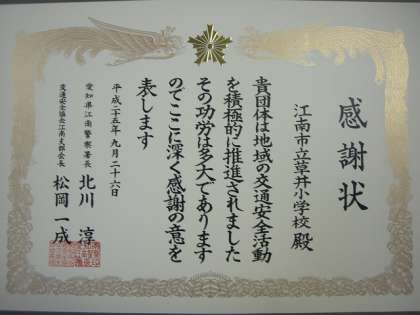 感謝状
江南市立草井小学校 殿
貴団体は地域の交通安全活動
を積極的に推進されました
その功労は多大であります
のでここに深く感謝の意を
表します
平成二十五年 九月二十六日
愛知県江南警察署長 北川 淳
交通安全協会江南支部会長 松岡 一成